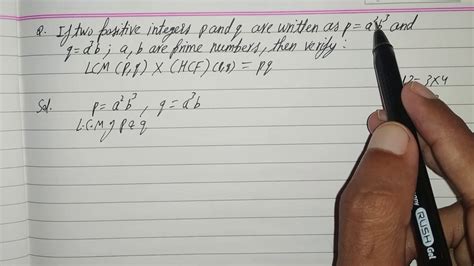 Q. If two positive integers p and q are written as p = a²b³ and
q = a³b ; a, b are prime numbers, then verify :
LCM (p,q) × (HCF) (p,q) = pq
12 = 3×4
Sol. p = a²b³ , q = a³b
L.C.M of p & q
RUSH Gel